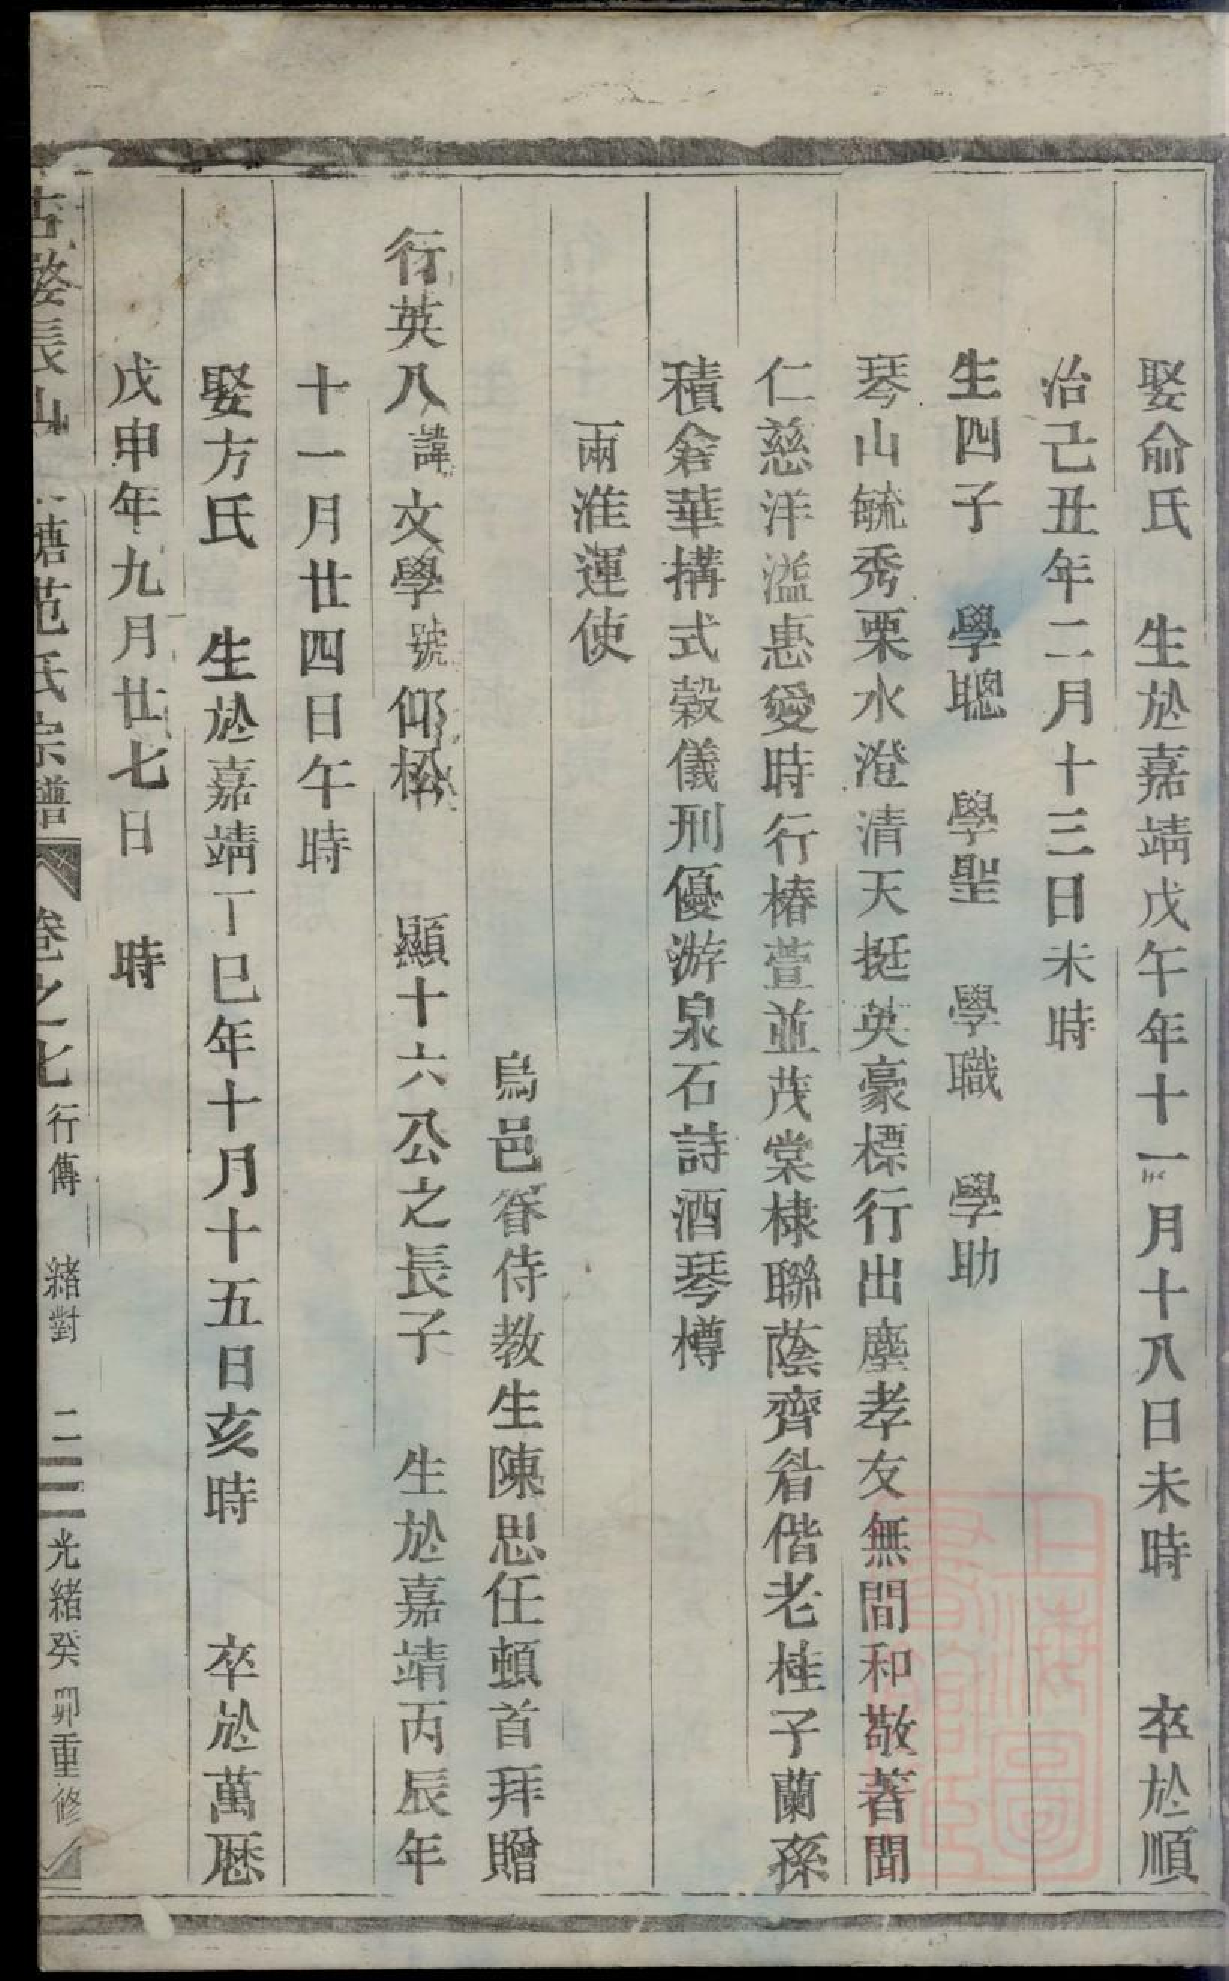 娶俞氏　生於嘉靖戊午年十一月十八日未時　卒於順
治己丑年二月十三日未時
生四子　學聰　學聖　學職　學助
琴山毓秀栗水澄清天挺英豪標行出塵孝友無間和敬著聞
仁慈洋溢惠愛時行椿萱並茂棠棣聯蔭齊眉偕老桂子蘭孫
積倉華構式穀儀刑優游泉石詩酒琴樽
兩淮運使
烏邑眷侍教生陳思任頓首拜贈
行英八諱文學號仰松　顯十六公之長子　生於嘉靖丙辰年
十一月廿四日午時
娶方氏　生於嘉靖丁巳年十月十五日亥時　卒於萬曆
戊申年九月廿七日　時
古婺長山　塘范氏宗譜　卷之七　行傳　緒對　二　光緒癸卯重修
上海圖書館藏